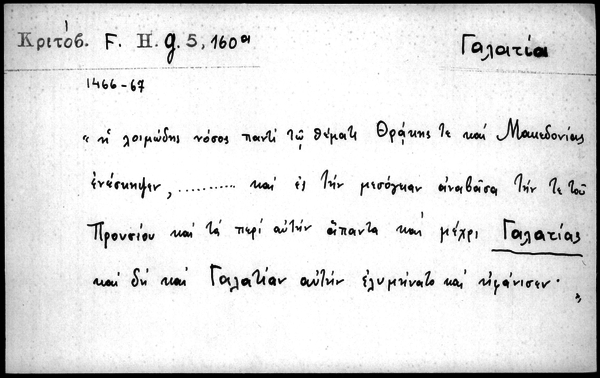 Κριτόβ. F. H. g. 5, 160ᵃ
Γαλατία
1466-67
« ἡ λοιμώδης νόσος παντὶ τῷ θέματι Θρᾴκης τε καὶ Μακεδονίας
ἐνέσκηψεν, .......... καὶ ἐς τὴν μεσόγειαν ἀναβᾶσα τήν τε τοῦ
Προυσίου καὶ τὰ περὶ αὐτὴν ἅπαντα καὶ μέχρι Γαλατίας
καὶ δὴ καὶ Γαλατίαν αὐτὴν ἐλυμήνατο καὶ ἠφάνισεν· »